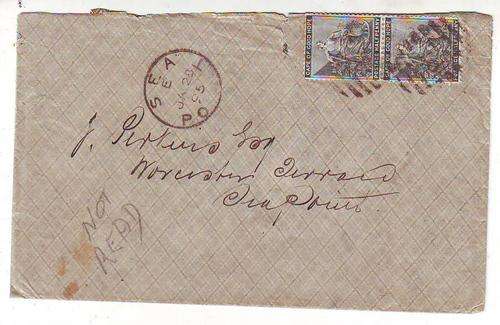 CAPE OF GOOD HOPE
CAPE OF GOOD HOPE
SEA
JA 28
95
P.O
J. Perkins Esq
Worcester Terrace
Sea Point
NOT
REPD